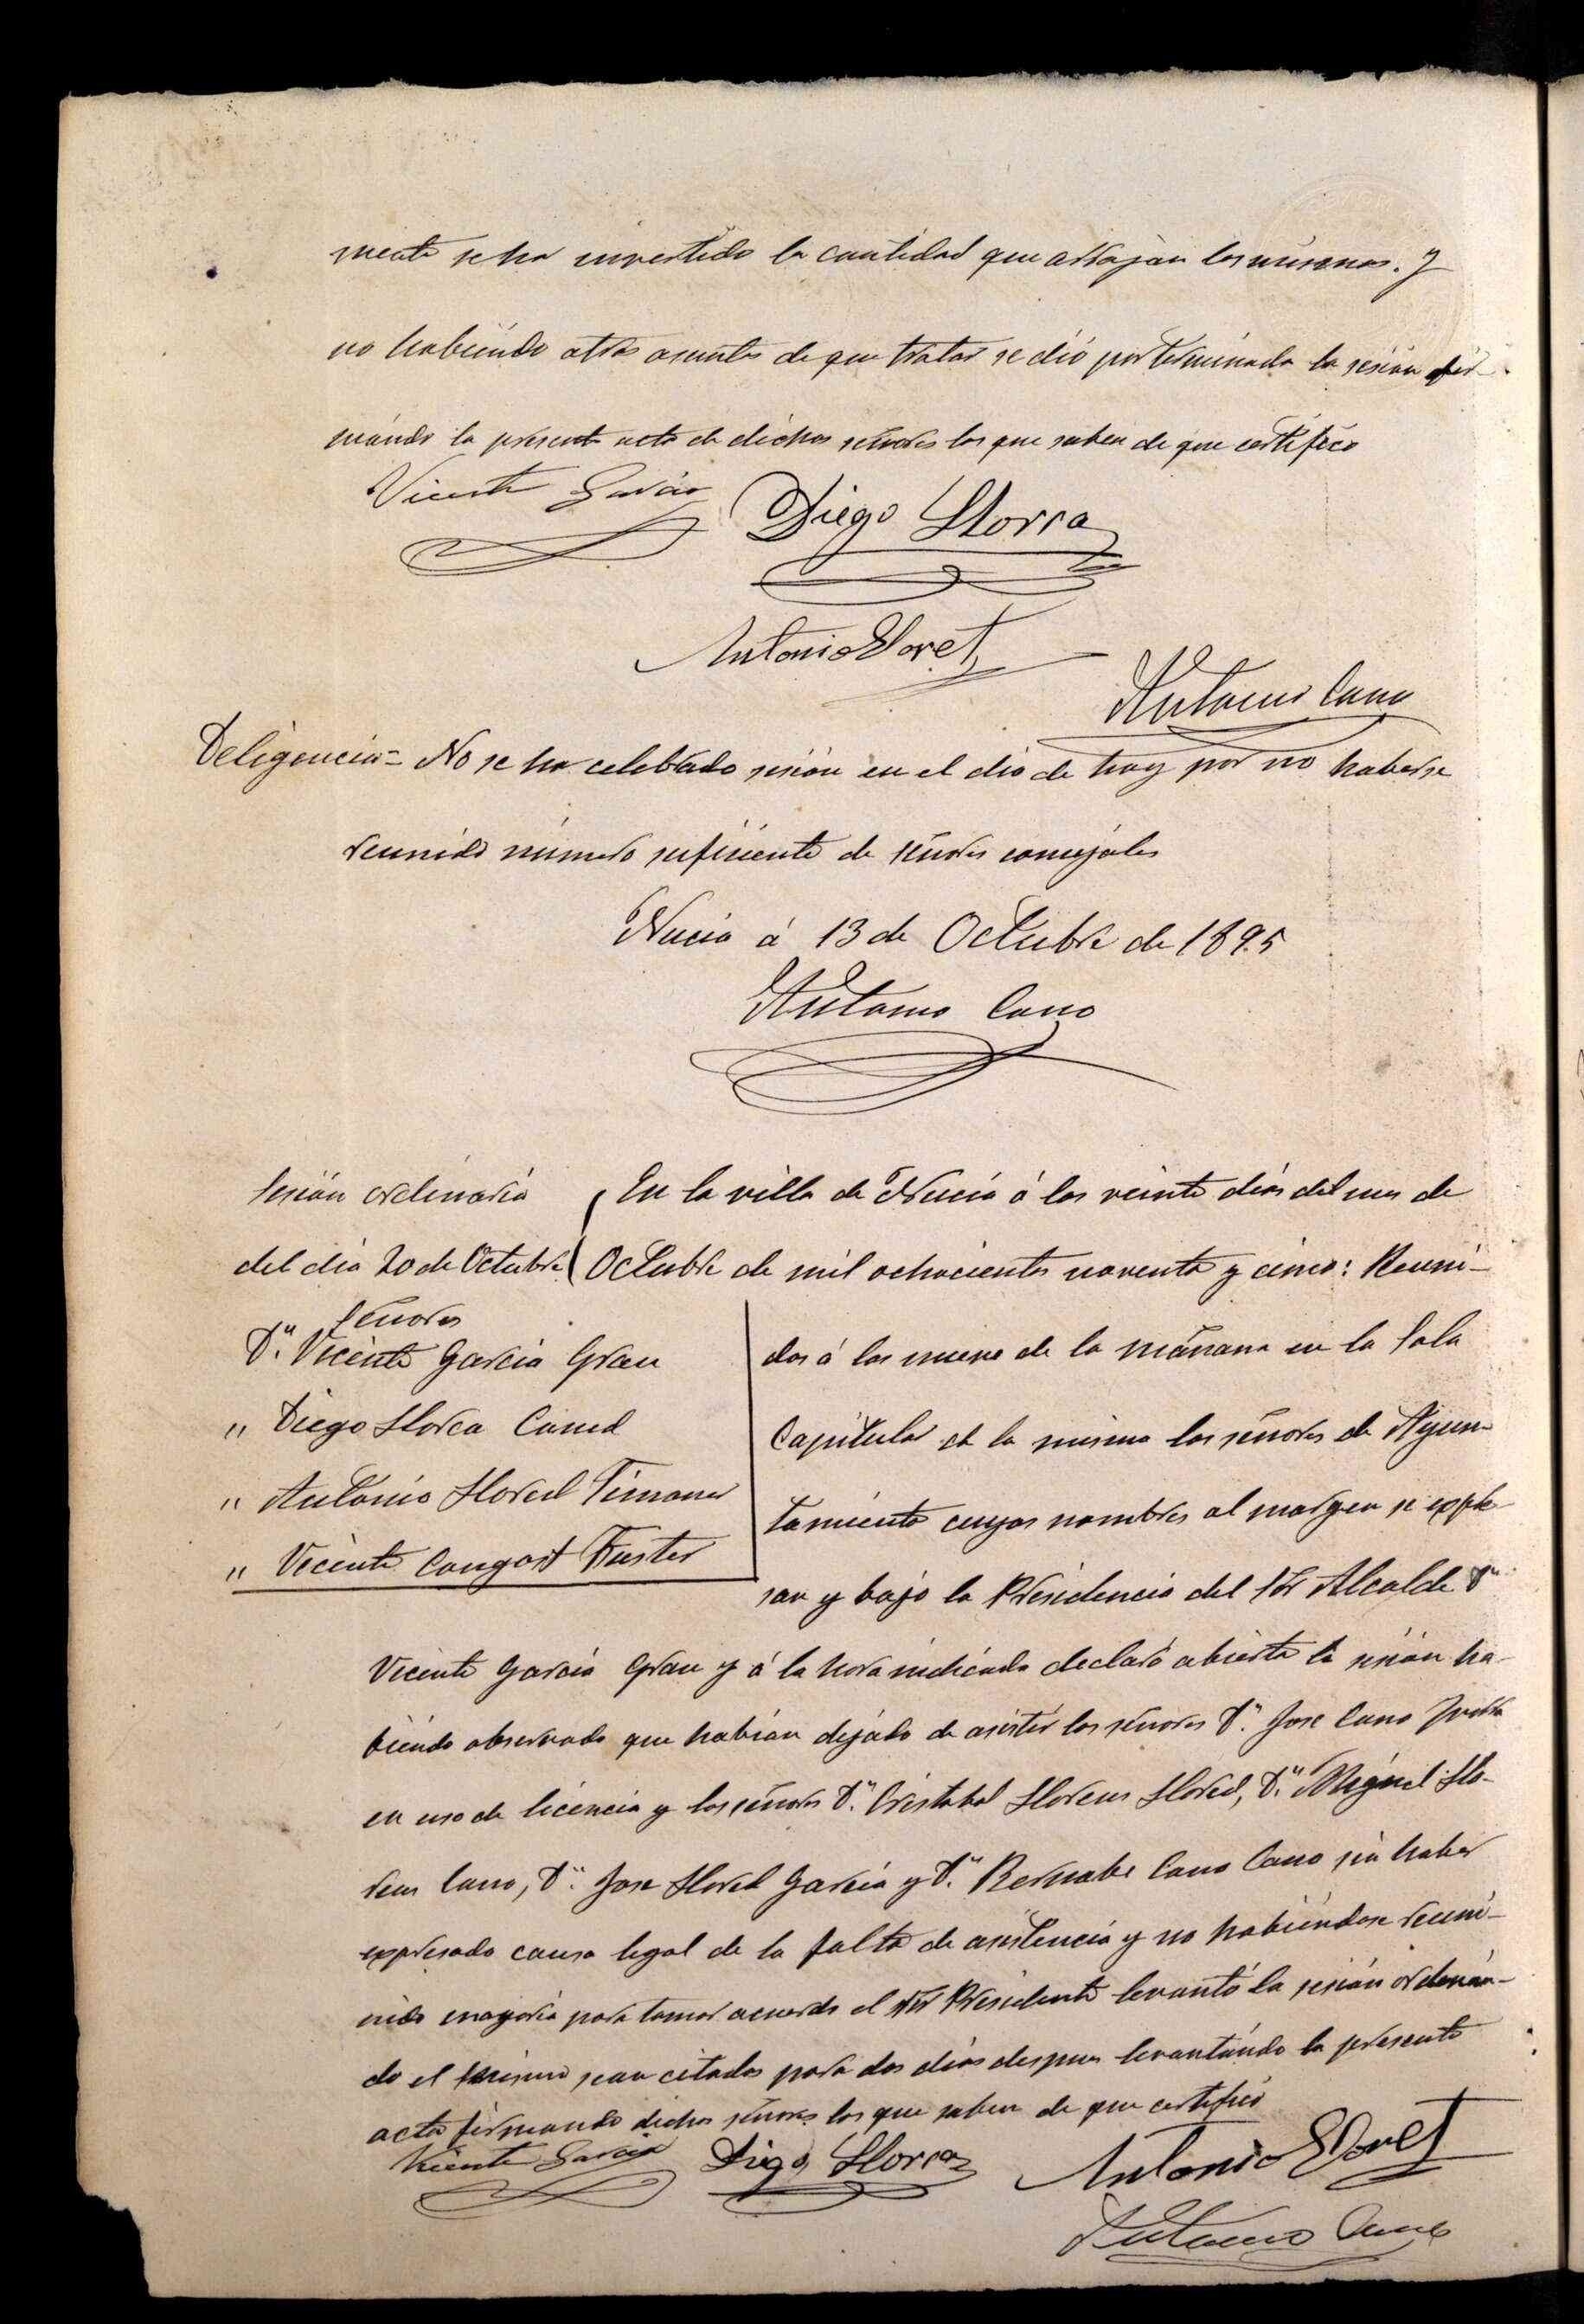 mente se ha invertido la cantidad que arrojan los mismos. Y
no habiendo otros asuntos de que tratar se dió por terminada la sesión fir-
mándo la presente acta de dichos señores los que saben de que certifico
Vicente Garcia Diego Llorca
Antonio Lloret
Antonio Cano
Deligencia= No se ha celebrado sesión en el dia de hoy por no haberse
reunido número suficiente de señores concejales
Nucia á 13 de Octubre de 1895
Antonio Cano
Sesión ordinaria
del dia 20 de Octubre
Señores
Dn. Vicente Garcia Grau
" Diego Llorca
" Antonio Lloret Timoner
" Vicente Congost Fuster
En la villa de Nucia á los veinte dias del mes de
Octubre de mil ochocientos noventa y cinco: Reuni-
dos á las nueve de la mañana en la Sala
Capitular de la misma los señores de Ayun-
tamiento cuyos nombres al margen se expre-
san y bajo la Presidencia del Sor Alcalde Dn
Vicente Garcia Grau y á la hora indicada declaró abierta la sesión ha-
biendo observado que habian dejado de asistir los señores Dn. Jose Cano
en uso de licencia y los señores Dn. Cristobal Llorens Lloret, Dn. Miguel Llo-
rens Cano, Dn. Jose Lloret Garcia y Dn. Bernabe Cano Cano sin haber
expresado causa legal de la falta de asistencia y no habiéndose reuni-
nido mayoria para tomar acuerdo el Sor Presidente levantó la sesión ordenán-
do el mismo sean citados para dos dias despues levantándo la presente
acta firmando dichos señores los que saben de que certifico
Vicente Garcia Diego Llorca Antonio Lloret
Antonio Cano